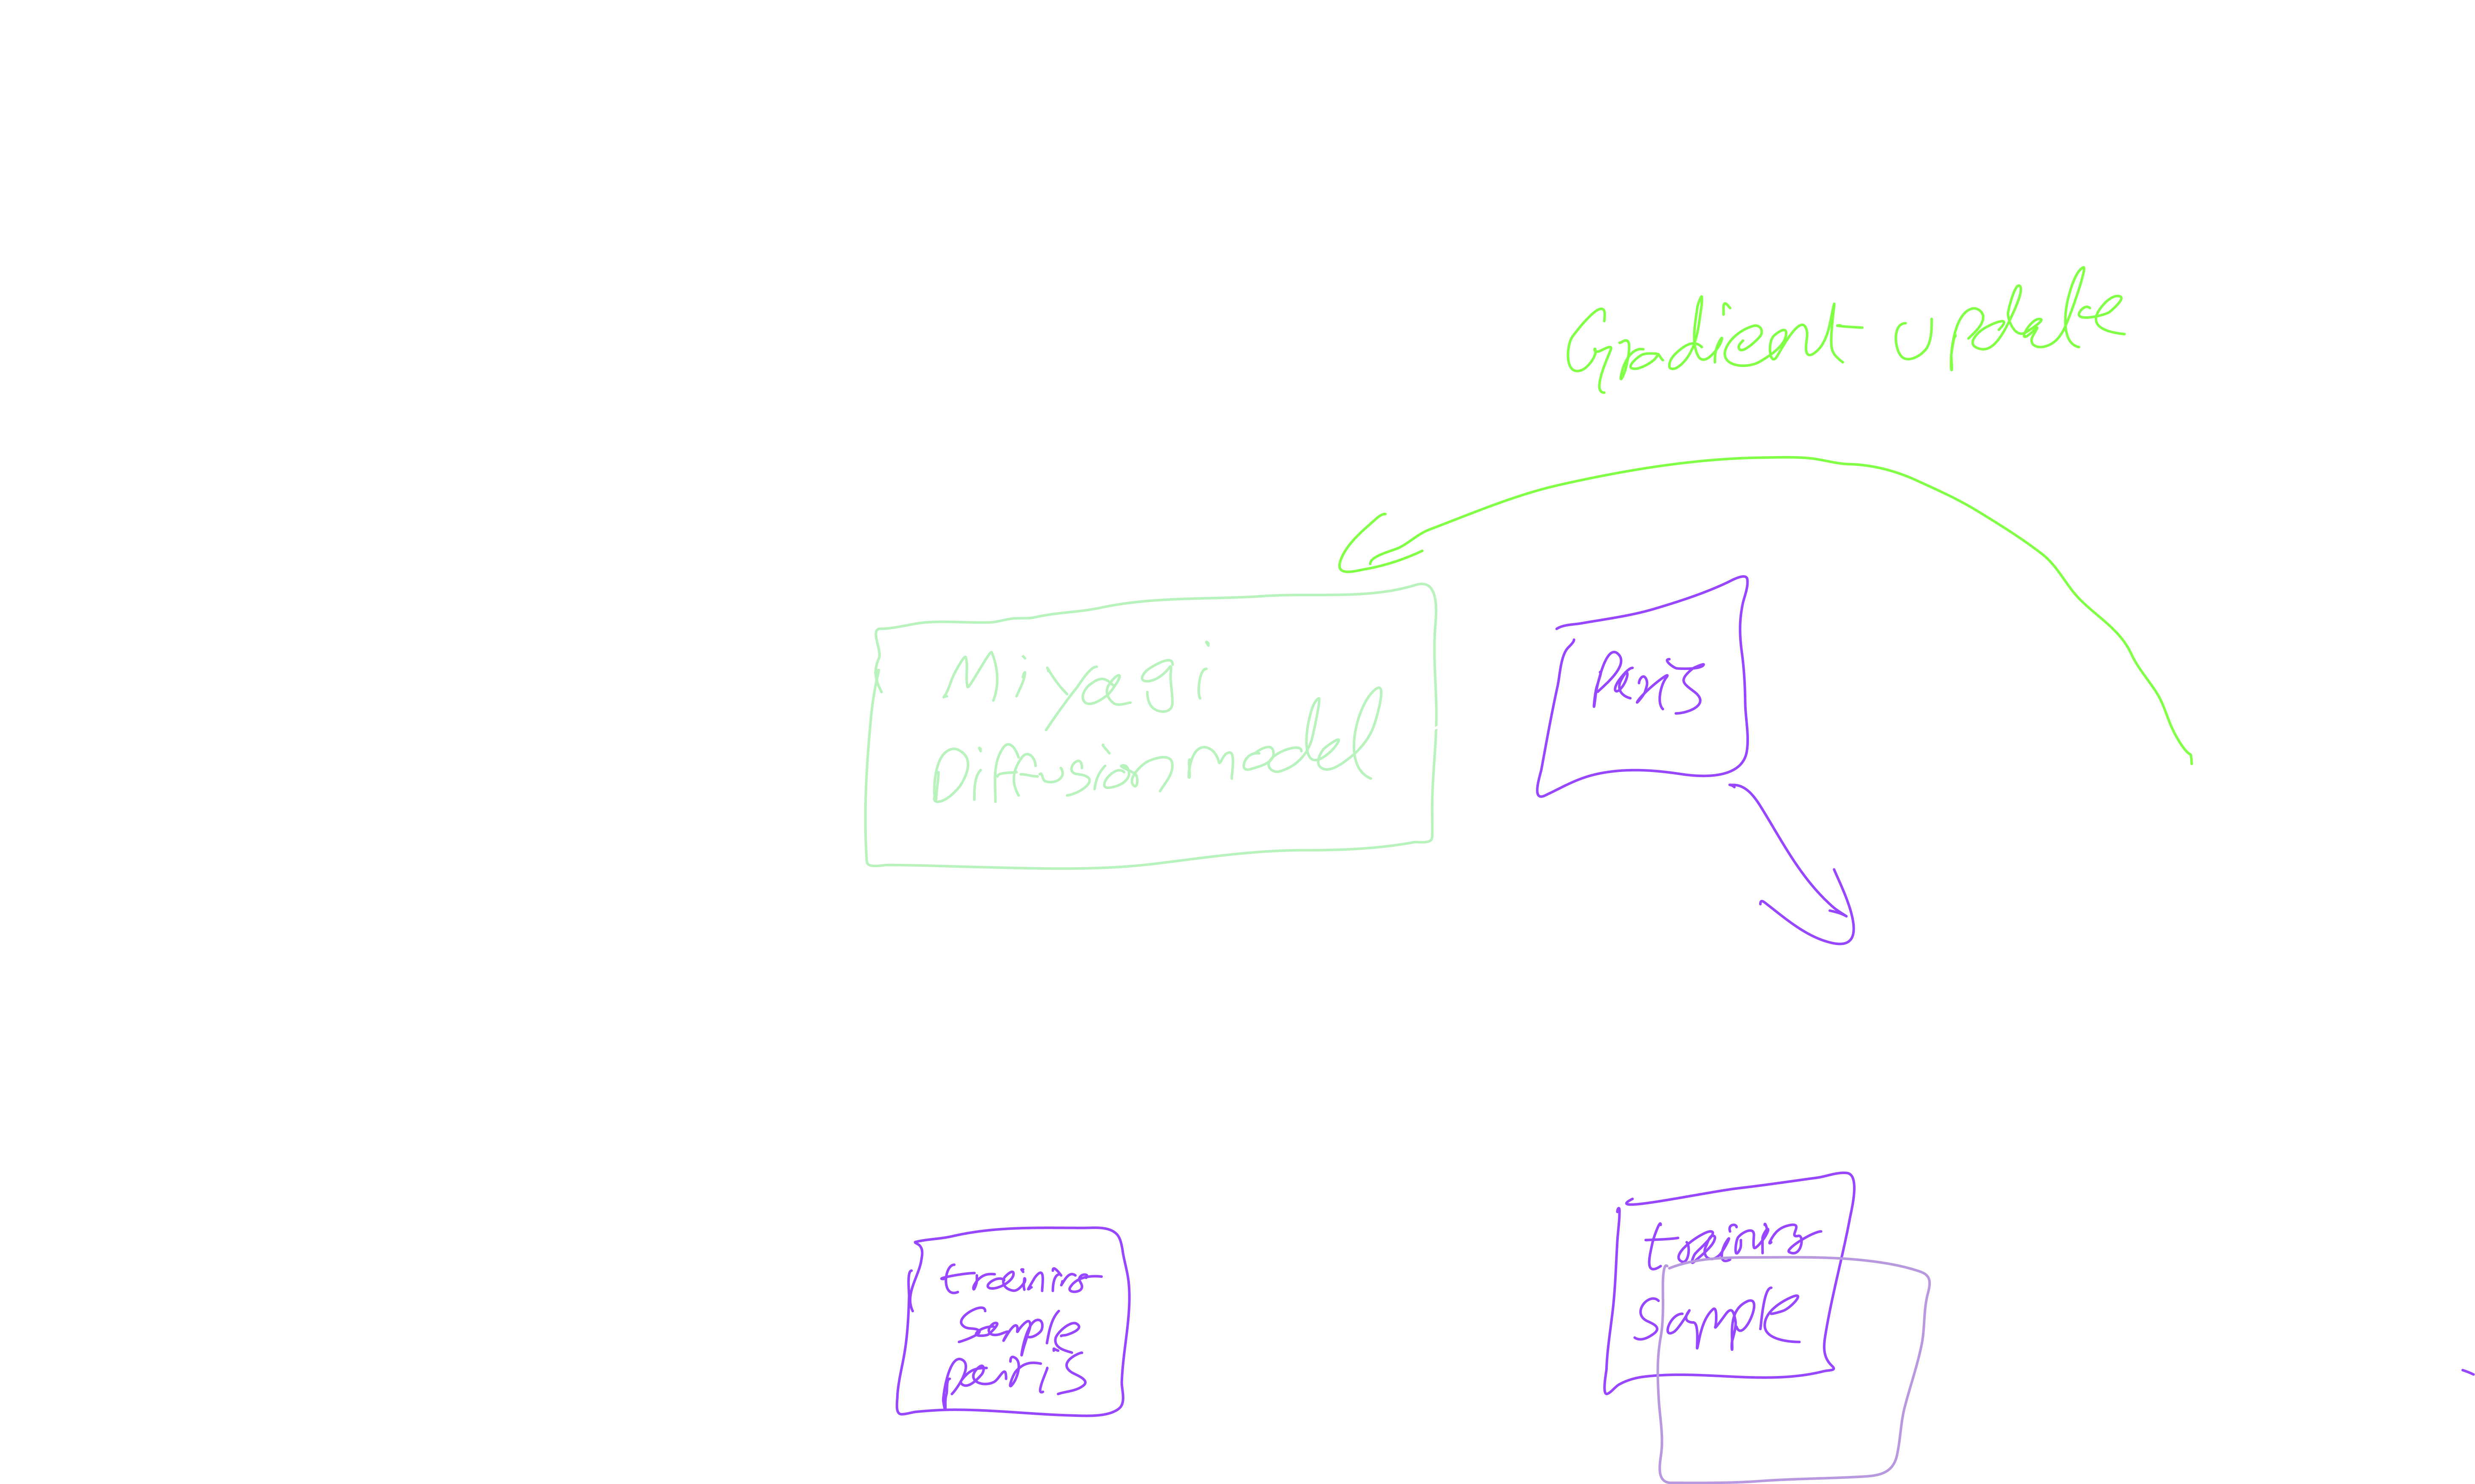 Gradient update
Miyagi
Diffusion model
Pairs
training
sample
training
sample
pairs